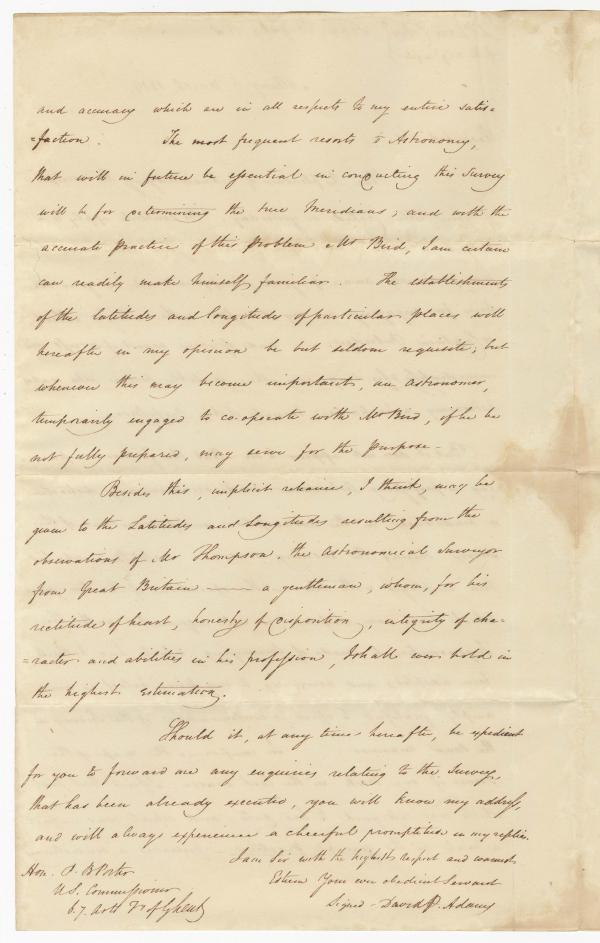 and accuracy which are in all respects to my entire satis=
=faction. The most frequent resorts to Astronomy,
that will in future be essential in conducting this Survey
will be for determining the true Meridians; and with the
accurate practice of this problem Mr Bird, I am certain
can readily make himself familiar. The establishments
of the latitudes and longitudes of particular places will
hereafter in my opinion be but seldom requisite; but
whenever this may become important, an astronomer,
temporarily engaged to co-operate with Mr Bird, if he be
not fully prepared, may serve for the purpose -
Besides this, implicit reliance, I think, may be
given to the Latitudes and Longitudes resulting from the
observations of Mr Thompson, the Astronomical Surveyor
from Great Britain —— a gentleman, whom, for his
rectitude of heart, honesty of disposition, integrity of cha-
=racter and abilities in his profession, I shall ever hold in
the highest estimation.
Should it, at any time hereafter, be expedient
for you to forward me any enquiries relating to the Survey,
that has been already executed, you will know my address,
and will always experience a cheerful promptitude in my replies.
I am Sir with the highest respect and warmest
Esteem Your ever obedient Servant
Signed - David P. Adams
Hon. P. B Porter
U S. Commissioner
6. 7. Arts Tr of Ghent